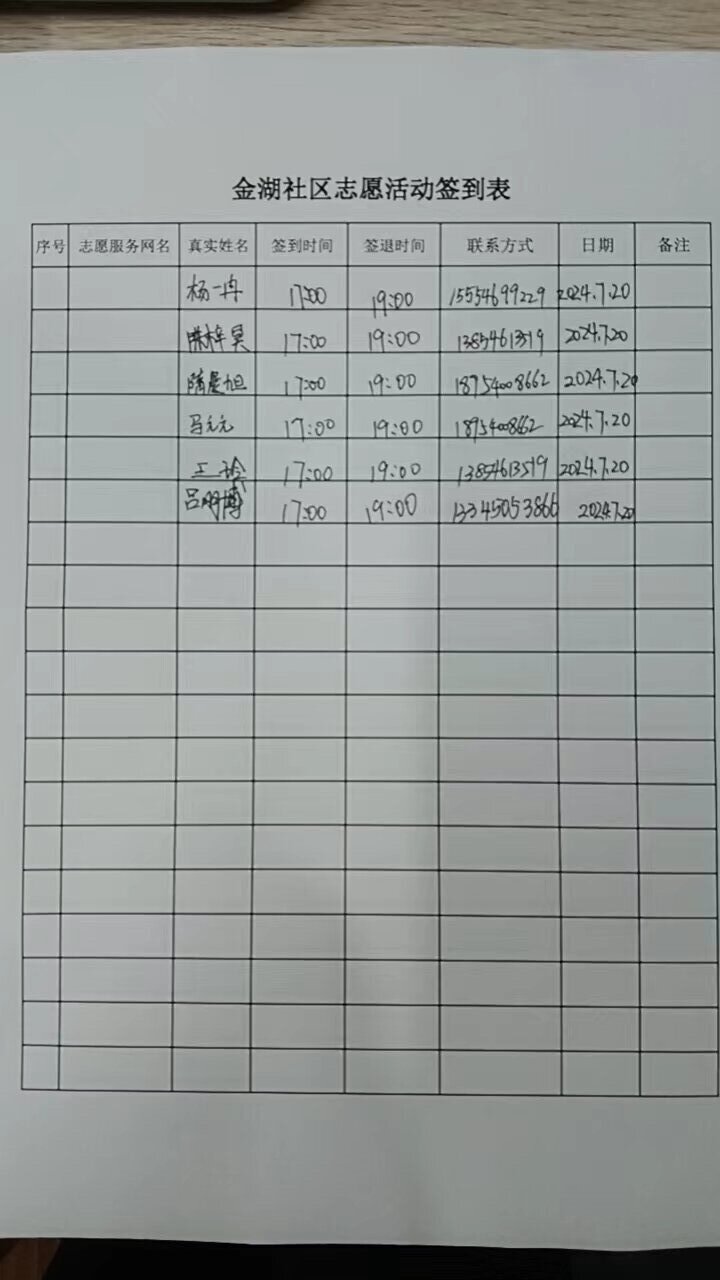 金湖社区志愿活动签到表
序号 志愿服务网名 真实姓名 签到时间 签退时间 联系方式 日期 备注
杨一冉 17:00 19:00 15554699229 2024.7.20
梓昊 17:00 19:00 13854613519 2024.7.20
隋是旭 17:00 19:00 18754008662 2024.7.20
马元元 17:00 19:00 18954008662 2024.7.20
王玲 17:00 19:00 13854613519 2024.7.20
吕明博 17:00 19:00 13345053866 2024.7.20